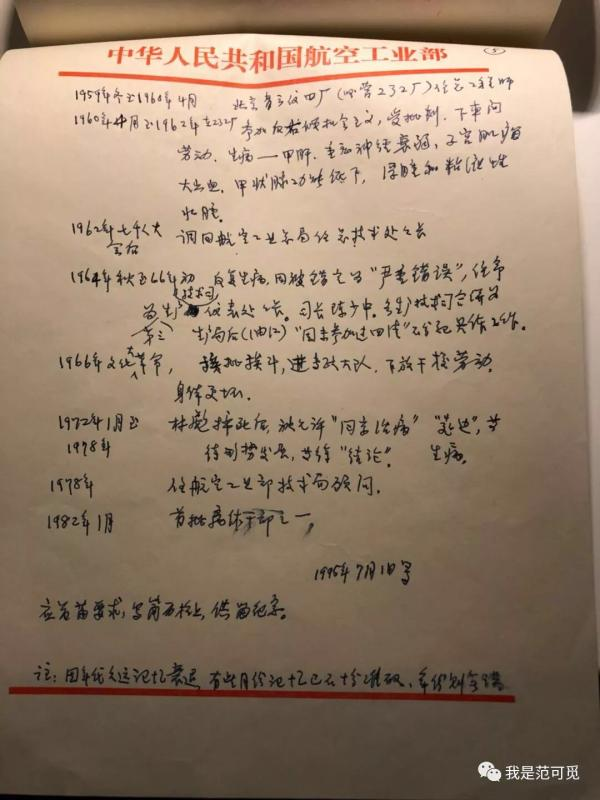 中华人民共和国航空工业部
⑤
1959年冬至1960年4月 北京首 仪四厂(国营232厂)任总工程师
1960年4月至1962年在232厂参加反右倾机会主义,受批判.下车间
劳动.生病——甲肝.重 神经衰弱,子宫肌瘤
大出血.甲状腺功能低下,浮肿和粘液性
水肿。
1962年七千人大会后 调回航空工业总局任总技术处处长
1964年秋至66年初 反复生病,因被错定为"严重错误",任命
为 技术司仪表处处长.司长陈少中.
第三 局后 "因未参加过四清"不分配具体工作.
1966年文化大革命, 挨批挨斗,进 大队.下放干校劳动.
身体更坏.
1972年1月至1978年 林彪摔死后,被允许"回京治病"
待形势发展,等待"结论". 生病.
1978年 任航空工业部技术局顾问.
1982年1月 首批离休干部之一。
1995年7月1日
应苗苗要求,写简历 ,供留纪念。
注:因年代久远记忆衰退 有些月份记忆已不十分准确、年份则全
我是范可觅